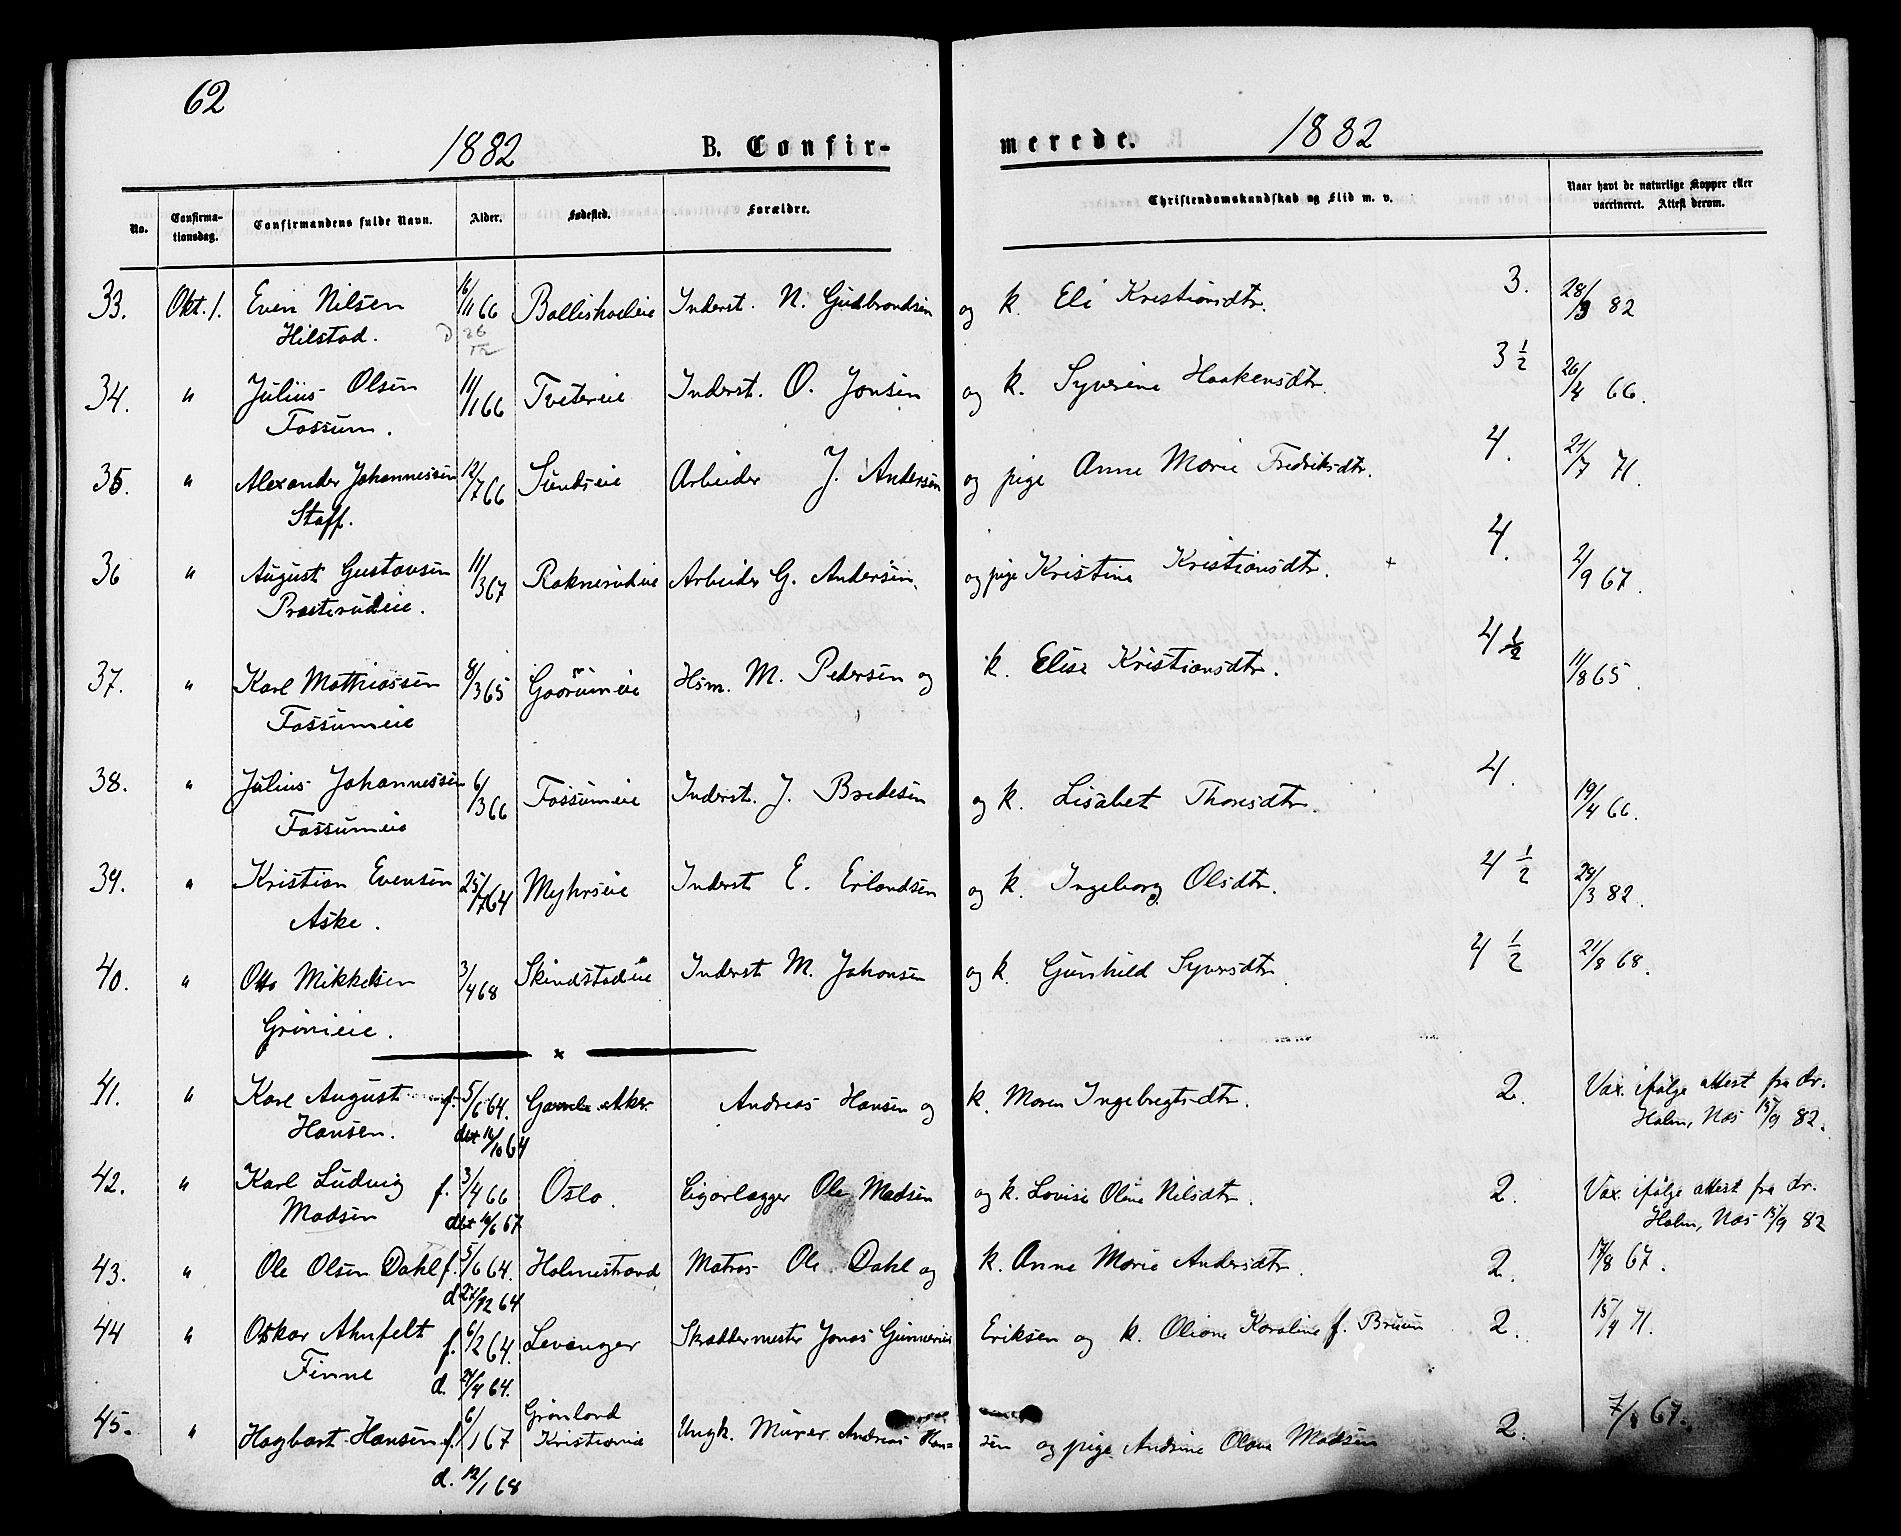 62
1882 B. Confir- merede. 1882
No. Confirma-tionsdag. Confirmandens fulde Navn. Alder. Fødested. Forældre. Christendomskundskab og Flid m. v. Naar havt de naturlige Kopper eller vaccineret. Attest derom.
33. Okt. 1. Even Nilsen 16/11 66 Inderst. N. Gudbrandsen og k. Eli Kristiansdtr. 3. 28/3 82
Hilstad. D 26/12
34. " Julius Olsen 11/1 66 Tvetereie Inderst. O. Jonsen og k. Syverine Haakensdtr. 3 1/2 26/4 66.
Fossum.
35. " Alexander Johannessen 12/7 66 Sundseie Arbeider J. Andersen og pige Anne Marie Fredriksdtr. 4. 21/7 71.
Staff.
36 " August Gustavsen 11/3 67 Raknerudeie Arbeider G. Andersen, og pige Kristine Kristiansdtr. + 4. 2/9 67.
Præsterudeie.
37. " Karl Mathiassen 8/3 65 Hsm. M. Pedersen og k. Elise Kristiansdtr. 4 1/2 11/8 65.
Fossumeie
38. " Julius Johannessen 6/3 66 Fossumeie Inderst. J. Bredesen og k. Lisabet Thorsdtr. 4. 19/4 66.
Fossumeie
39. " Kristian Evensen 25/7 64 Myhrseie Inderst E. Erlandsen og k. Ingeborg Olsdtr. 4 1/2 29/3 82.
Aske.
40. " Otto Mikkelsen 3/4 68 Skindstadeie Inderst M. Johansen og k. Gunhild Syversdtr. 4 1/2 21/8 68.
Grønieie.
x
41. " Karl August f. 5/6 64. Gamle Aker Andreas Hansen og k. Maren Ingebregtsdtr. 2. Vax. ifølge attest fra dr.
Hansen. dbt 16/10 64 Holm, Nas 15/9 82.
42. " Karl Ludvig f. 3/4 66 Oslo. Cigarlægger Ole Madsen og k. Lovise Oline Nilsdtr. 2. Vax. ifølge attest fra dr.
Madsen dbt 16/6 67 Holm, Nas 15/9 82
43. " Ole Olsen Dahl f. 5/6 64. Holmestrand Matros Ole Dahl og k. Anne Marie Andersdtr. 2. 17/8 67.
d 21/12 64
44 " Oskar Ahnfelt f. 6/2 64. Levanger Skræddermester Jonas Gunnerius Eriksen og k. Oliane Karoline f. Bruun 2. 15/4 71.
Finne d. 24/4 64.
45. " Hagbart Hansen f. 6/1 67 Grønland Kristiania Ungk. Murer Andreas Han- sen og pige Andrine Olava Madsen 2. 7/8 67.
d. 12/1 68